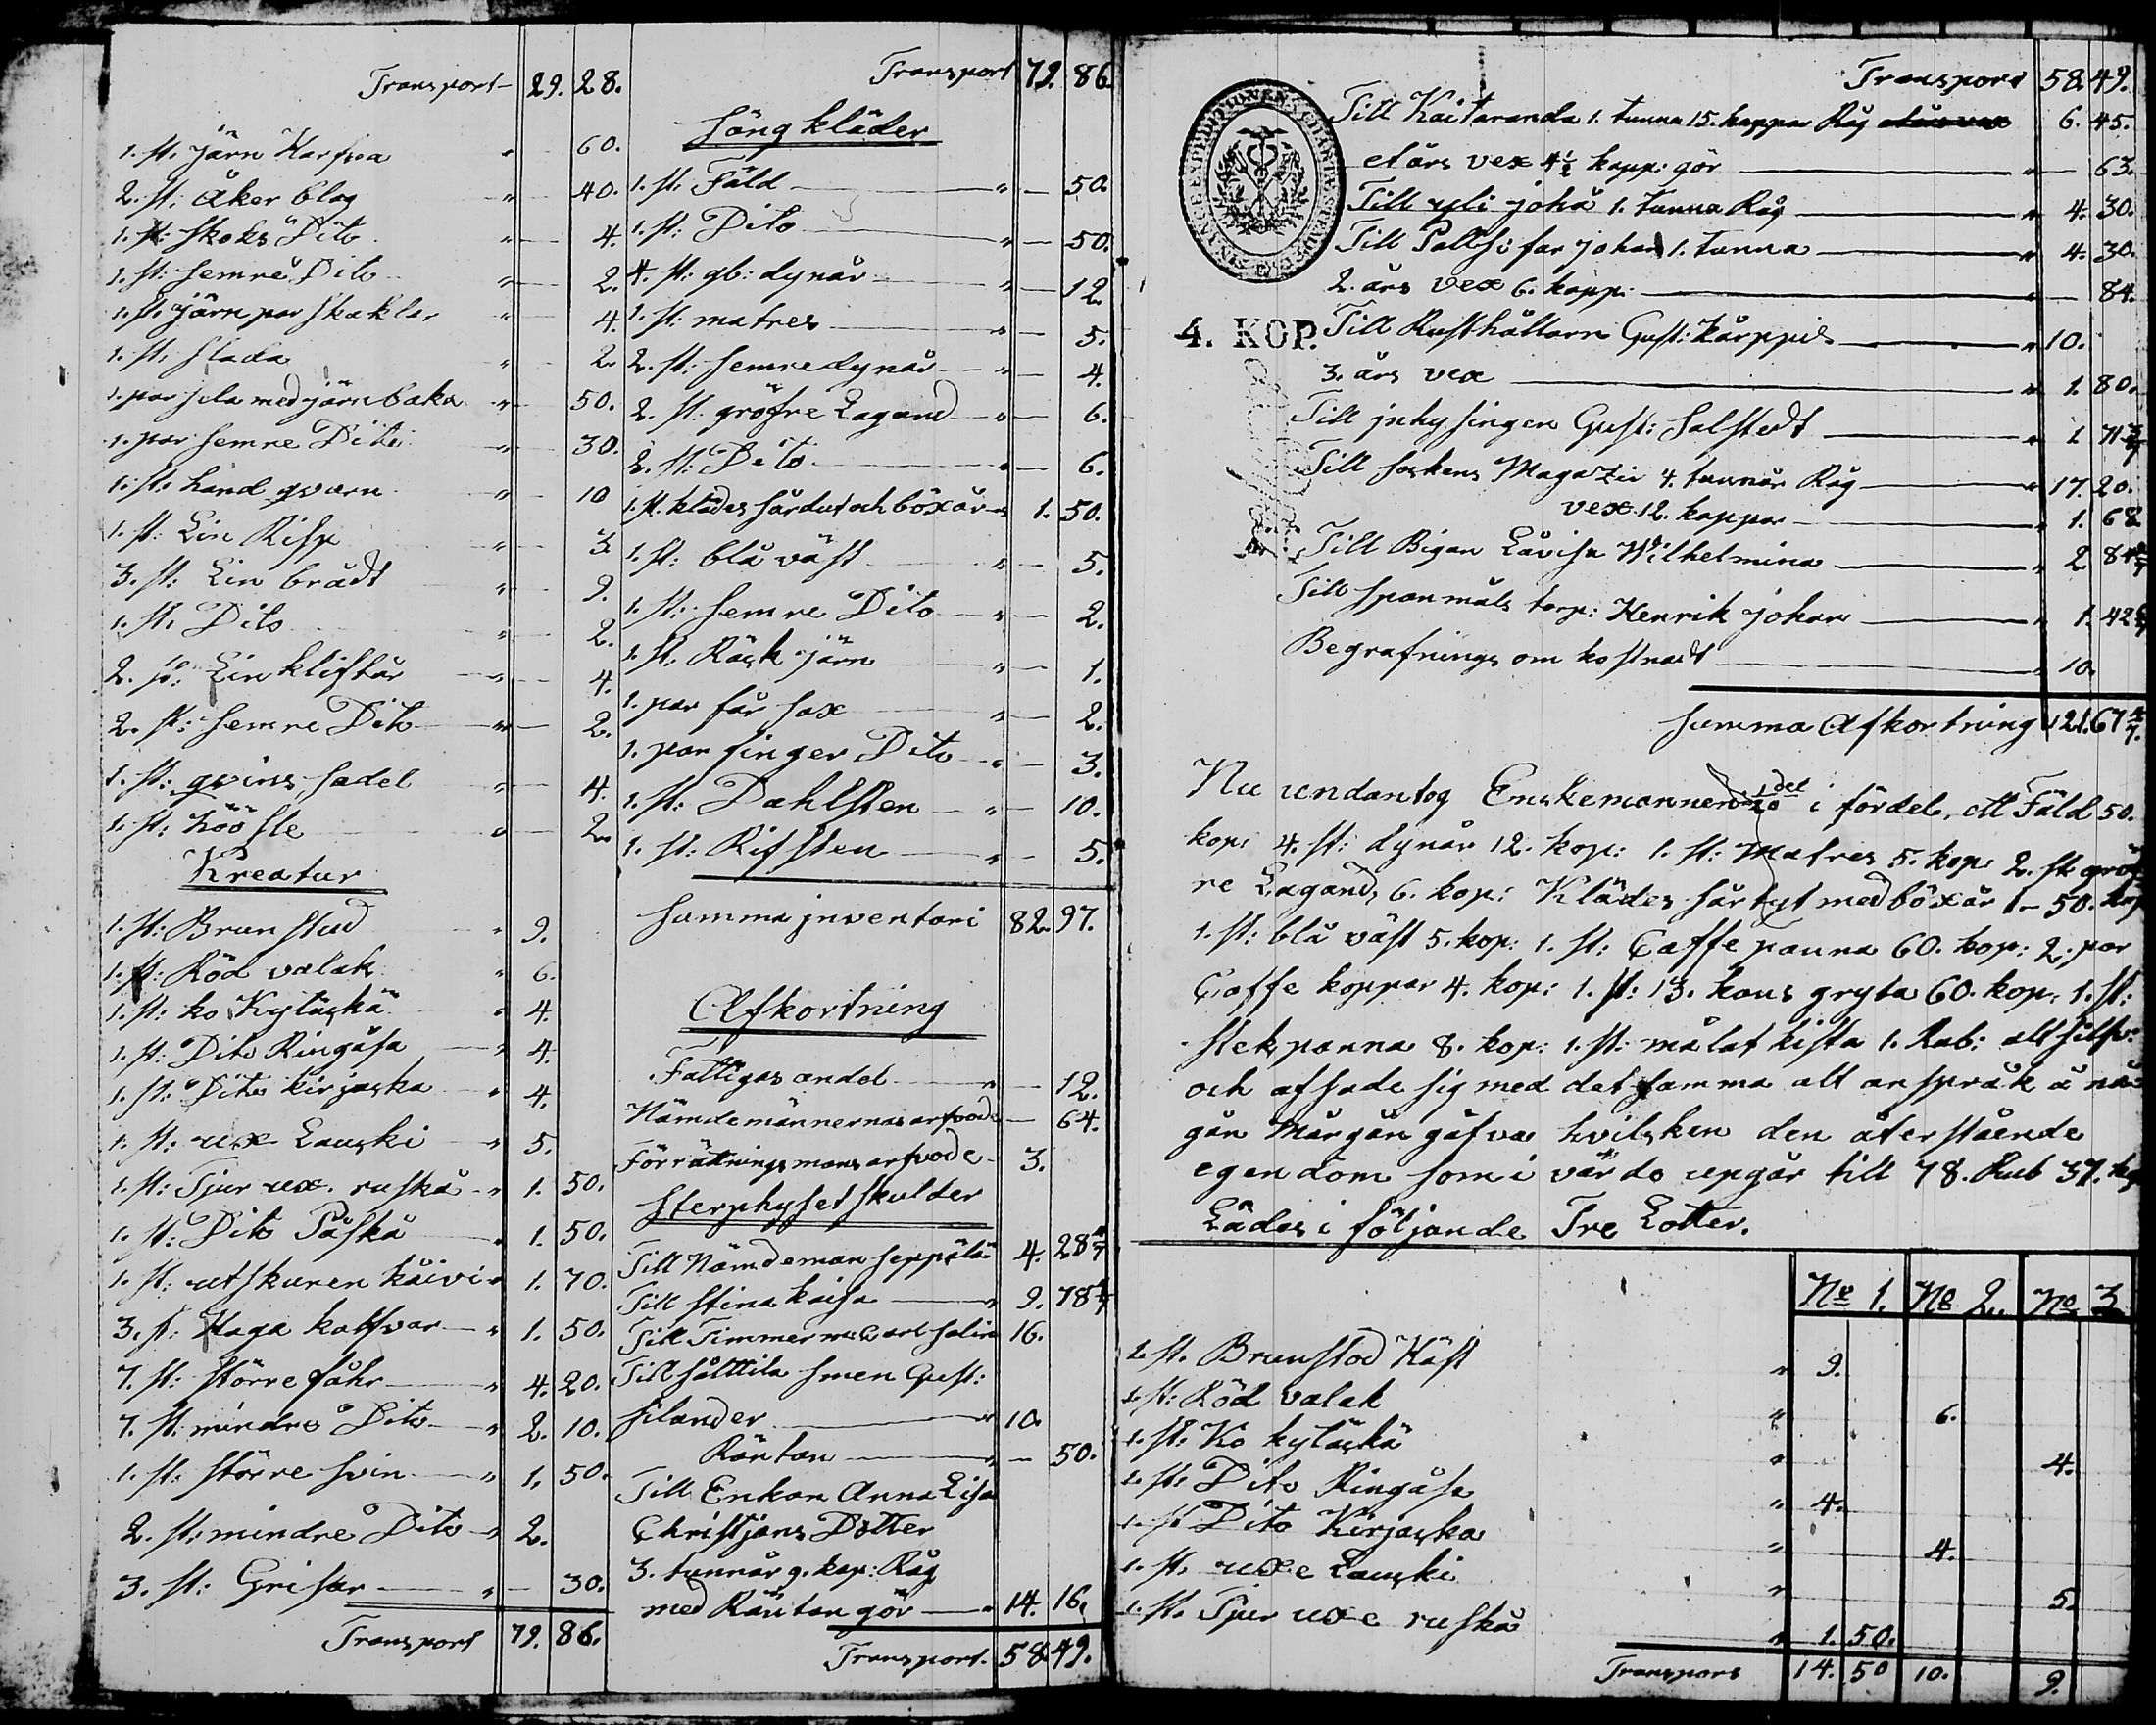 Transport 29. 28.
1. st. järn Harfva " 60.
2. st: åker blog " 40.
1. st: skoks Dito " 4.
1. st: semre Dito " 2.
1. st. järn par skaklar " 4.
1. st. slada " 2.
1. par sela med järn baka " 50.
1. par semre Dito " 30.
1. st. hand qvarn " 10
1. st: Lin Risp " 3.
3. st: Lin brådt " 9.
1. st. Dito " 2.
2. st: Lin kliftår " 4.
2. st: semre Dito " 2.
1. st: qvins sadel " 4.
1. st: höö sle " 2.
Kreatur
1. st: Brun stud " 9.
1. st: Röd valak " 6.
1. st: ko Kyläskä " 4.
1. st: Dito Ringåsa " 4.
1. st: Dito kirjaska " 4.
1. st: uxe Lauski " 5.
1. st: Tjur uxe. ruska " 1. 50.
1. st: Dito Påska " 1. 50.
1. st: utskuren käivi " 1. 70.
3. st: Haga kalfvar " 1. 50.
7. st: större fåhr " 4. 20.
7. st: mindre Dito " 2. 10.
1. st: större svin " 1. 50.
2. st: mindre Dito " 2.
3. st: Grisar " 30.
Transport 79. 86.
Transport 79. 86.
Säng kläder
1. st. Fäld " 50.
1. st: Dito " 50.
4. st: gb: dynår " 12.
1. st: matres " 5.
2. st: semre dynår " 4.
2. st: gröfre Lagand " 6.
2. st: Dito " 6.
1. st. klädes sårdut och böxår " 1. 50.
1. st: blå väst " 5.
1. st: semre Dito " 2.
1. st. Räck järn " 1.
1. par får sax " 2.
1. par finger Dito " 3.
1. st: Dahlsten " 10.
1. st: Rifsten " 5.
Summa jnventari 82. 97.
Afkortning
Fattigas andel " 12.
Nämdemännernas arfvode 64.
Förrätnings mans arfvode 3.
Sterphyset skulder
Till Nämdeman Seppälä 4. 28 4/7
Till Stina kaisa " 9. 78 4/7
Till Timmerm: Carl Salin 16.
Till Sålttila smen Gust:
Silander " 10.
Räntan " 50.
Till Enkan Anna Lisa
Christjans Dotter
3. tunnår 9. kap: Råg
med Räntan gör " 14. 16.
Transport. 58. 49.
Transport 58. 49.
Till Kaitaranda 1. tunna 15. kappar Råg 6. 45.
et års vex 4½ kapp: gör " 63.
Till yli johå 1. tunna Råg " 4. 30.
Till Pallsi far johan 1. tunna " 4. 30.
2. års vex 6. kapp: " 84.
4. KOP.
Till Rusthållarn Gust: kårppil " 10.
3. års vex " 1. 80.
Till jnhysingen Gust: Salstedt " 1. 71 3/7
Till sokens Magazin 4. tunnår Råg " 17. 20.
vex. 12. kappar " 1. 68
Till Bigan Låvisa Wilhelmina " 2. 84
Till spanmåls torp: Henrik johan " 1. 42 6/7
Begrafnings om kostnadt " 10.
Summa Afkortning 121. 67 4/7.
Nu undantog Enskemannen 1/20 del i fördel, ett Fäld 50.
kop: 4. st: dynår 12. kop: 1. st: Matres 5. kop: 2. st: gröf
re Lagands 6. kop: Klädes sårtyt med böxår 1 – 50. kop
1. st: blå väst 5. kop: 1. st: Caffe panna 60. kop: 2. par
Caffe koppar 4. kop: 1. st: 13. kans gryta 60. kop: 1. st:
stek panna 8. kop: 1. st: målat kista 1. Rub: alt silfv:
och afsade sig med det samma alt anspråk å nå
gån Mårgån gåfva hvilsken den återstående
egendom som i värde upgår till 78. Rub 37. kop
Lådes i följande Tre Lotter.
No 1. No 2. No 3
1. st. Brunstod Häst " 9.
1. st: Röd valak " 6.
1. st: Ko kyläskä " 4.
1. st. Dito Ringåsa " 4.
1. st Dito Kirjaska " 4.
1. st. uxe Lauski " 5.
1. st. Tjur uxe ruska " 1. 50.
Transpors 14. 50 10. 9.